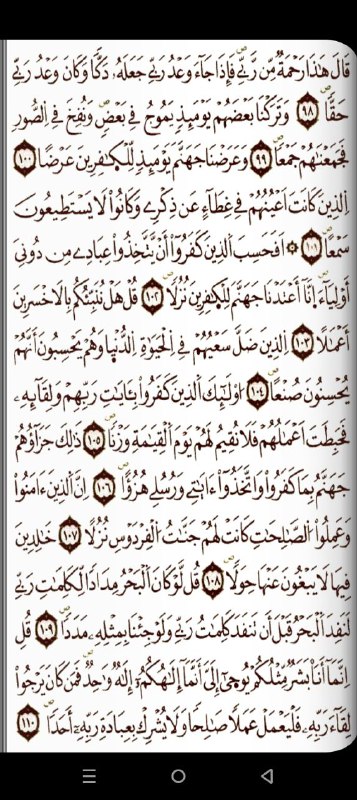 قَالَ هَٰذَا رَحْمَةٌ مِّن رَّبِّے فَإِذَا جَآءَ وَعْدُ رَبِّے جَعَلَهُۥ دَكّاً وَكَانَ وَعْدُ رَبِّے
حَقّاً ٩٨ وَتَرَكْنَا بَعْضَهُمْ يَوْمَئِذٍ يَمُوجُ فِے بَعْضٍ وَنُفِخَ فِے اِ۬لصُّورِ
فَجَمَعْنَٰهُمْ جَمْعاً ٩٩ وَعَرَضْنَا جَهَنَّمَ يَوْمَئِذٍ لِّلْكَٰفِرِينَ عَرْضاً ١٠٠
اِ۬لذِينَ كَانَتَ اَعْيُنُهُمْ فِے غِطَآءٍ عَن ذِكْرِے وَكَانُواْ لَا يَسْتَطِيعُونَ
سَمْعاً ١٠١ ۞ اَفَحَسِبَ اَ۬لذِينَ كَفَرُوٓاْ أَنْ يَّتَّخِذُواْ عِبَادِے مِن دُونِيَ
أَوْلِيَآءَ اِ۪نَّآ أَعْتَدْنَا جَهَنَّمَ لِلْكَٰفِرِينَ نُزُلاً ١٠٢ قُلْ هَلْ نُنَبِّئُكُم بِالَاخْسَرِينَ
أَعْمَٰلاً ١٠٣ اِ۬لذِينَ ضَلَّ سَعْيُهُمْ فِے اِ۬لْحَيَوٰةِ اِ۬لدُّنْيَا وَهُمْ يَحْسِبُونَ أَنَّهُمْ
يُحْسِنُونَ صُنْعاً ١٠٤ ا۟وْلَٰٓئِكَ اَ۬لذِينَ كَفَرُواْ بِـَٔايَٰتِ رَبِّهِمْ وَلِقَآئِهِۦ
فَحَبِطَتَ اَعْمَٰلُهُمْ فَلَا نُقِيمُ لَهُمْ يَوْمَ اَ۬لْقِيَٰمَةِ وَزْناً ١٠٥ ذَٰلِكَ جَزَآؤُهُمْ
جَهَنَّمُ بِمَا كَفَرُواْ وَاتَّخَذُوٓاْ ءَايَٰتِے وَرُسُلِے هُزُؤاً ١٠٦ اِنَّ اَ۬لذِينَ ءَامَنُواْ
وَعَمِلُواْ اُ۬لصَّٰلِحَٰتِ كَانَتْ لَهُمْ جَنَّٰتُ اُ۬لْفِرْدَوْسِ نُزُلاً ١٠٧ خَٰلِدِينَ
فِيهَا لَا يَبْغُونَ عَنْهَا حِوَلاً ١٠٨ قُل لَّوْ كَانَ اَ۬لْبَحْرُ مِدَاداً لِّكَلِمَٰتِ رَبِّے
لَنَفِدَ اَ۬لْبَحْرُ قَبْلَ أَن تَنفَدَ كَلِمَٰتُ رَبِّے وَلَوْ جِئْنَا بِمِثْلِهِۦ مَدَداً ١٠٩ قُلِ
اِنَّمَآ أَنَا بَشَرٌ مِّثْلُكُمْ يُوح۪يٰٓ إِلَيَّ أَنَّمَآ إِلَٰهُكُمُۥٓ إِلَٰهٌ وَٰحِدٌ فَمَن كَانَ يَرْجُواْ
لِقَآءَ رَبِّهِۦ فَلْيَعْمَلْ عَمَلاً صَٰلِحاً وَلَا يُشْرِكْ بِعِبَادَةِ رَبِّهِۦٓ أَحَداً ١١٠